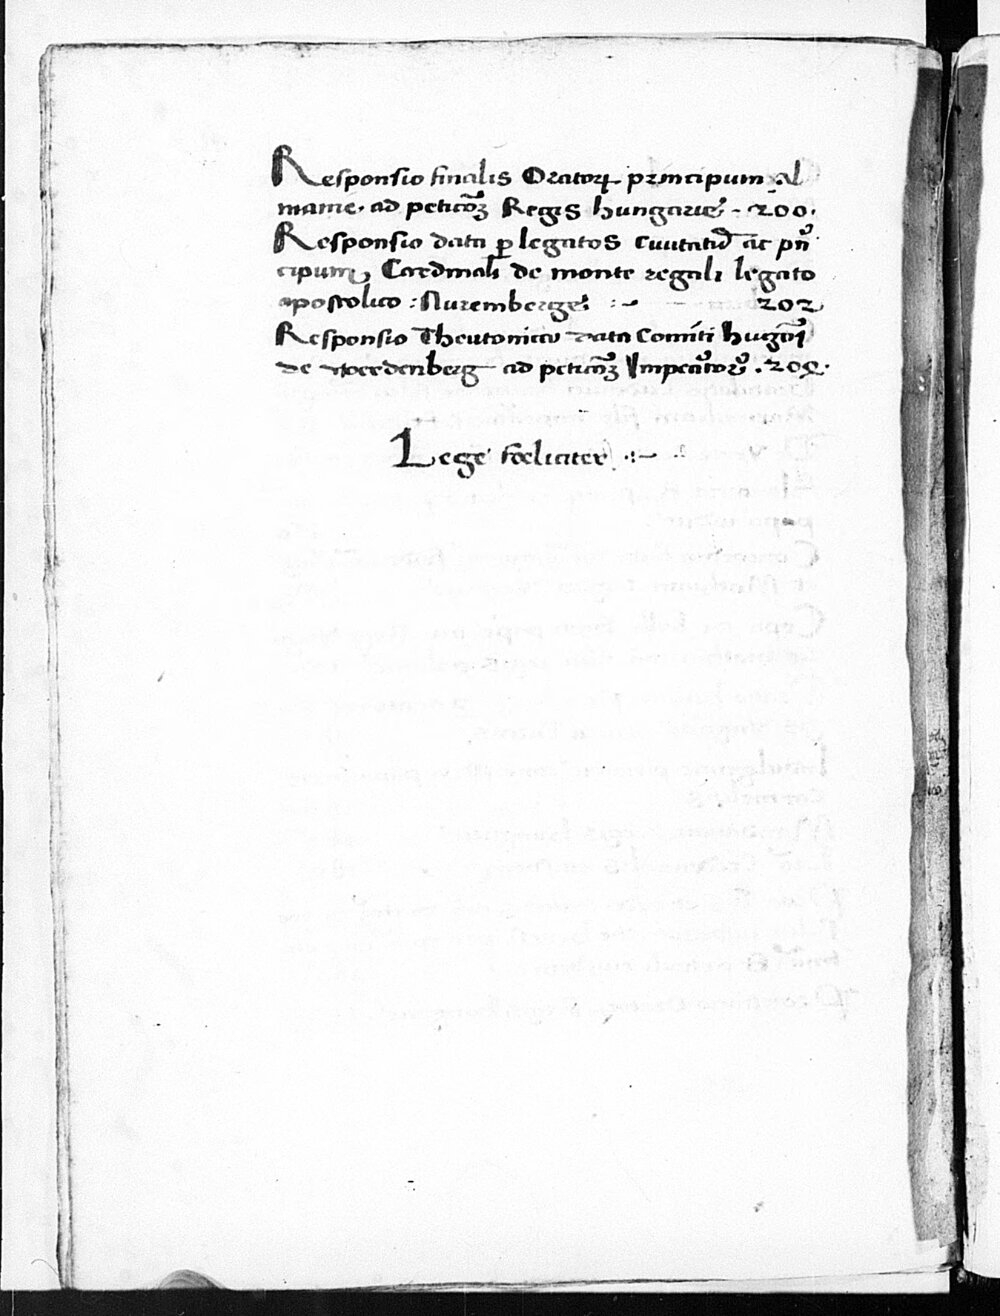 Responsio finalis Oratoꝝ principum al
manie· ad peticōꝫ Regis hungarie· - 200·
Responsio data ꝑ legatos Ciuitatū ac prī
cipum Cardinali de monte regali legato
apostolico : Nuremberge :~ - 202
Responsio Theutonica data Comiti hugōi
de werdenberg ad peticōꝫ Impatoris· 20
Lege foeliciter ·:~ ·: